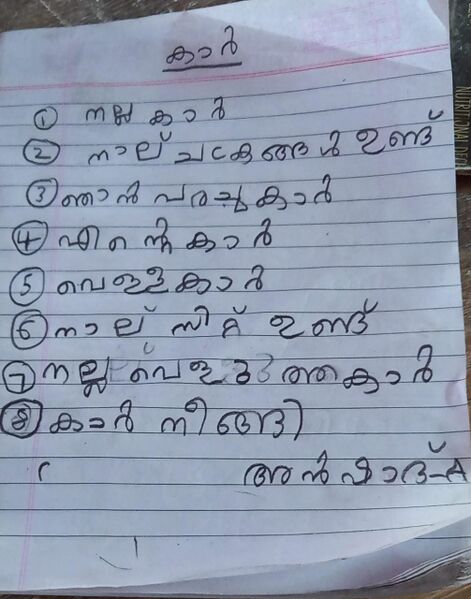 കാർ
① നല്ല കാർ
② നാല് ചടകങ്ങൾ ഉണ്ട്
③ ഞാൻ പരച്ച കാർ
④ എിന്റെ കാർ
⑤ വെള്ള കാർ
⑥ നാല് സീറ്റ് ഉണ്ട്
⑦ നല്ല വെളുത്ത കാർ
⑧ കാർ നീങ്ങി
അൻഷാദ്-A